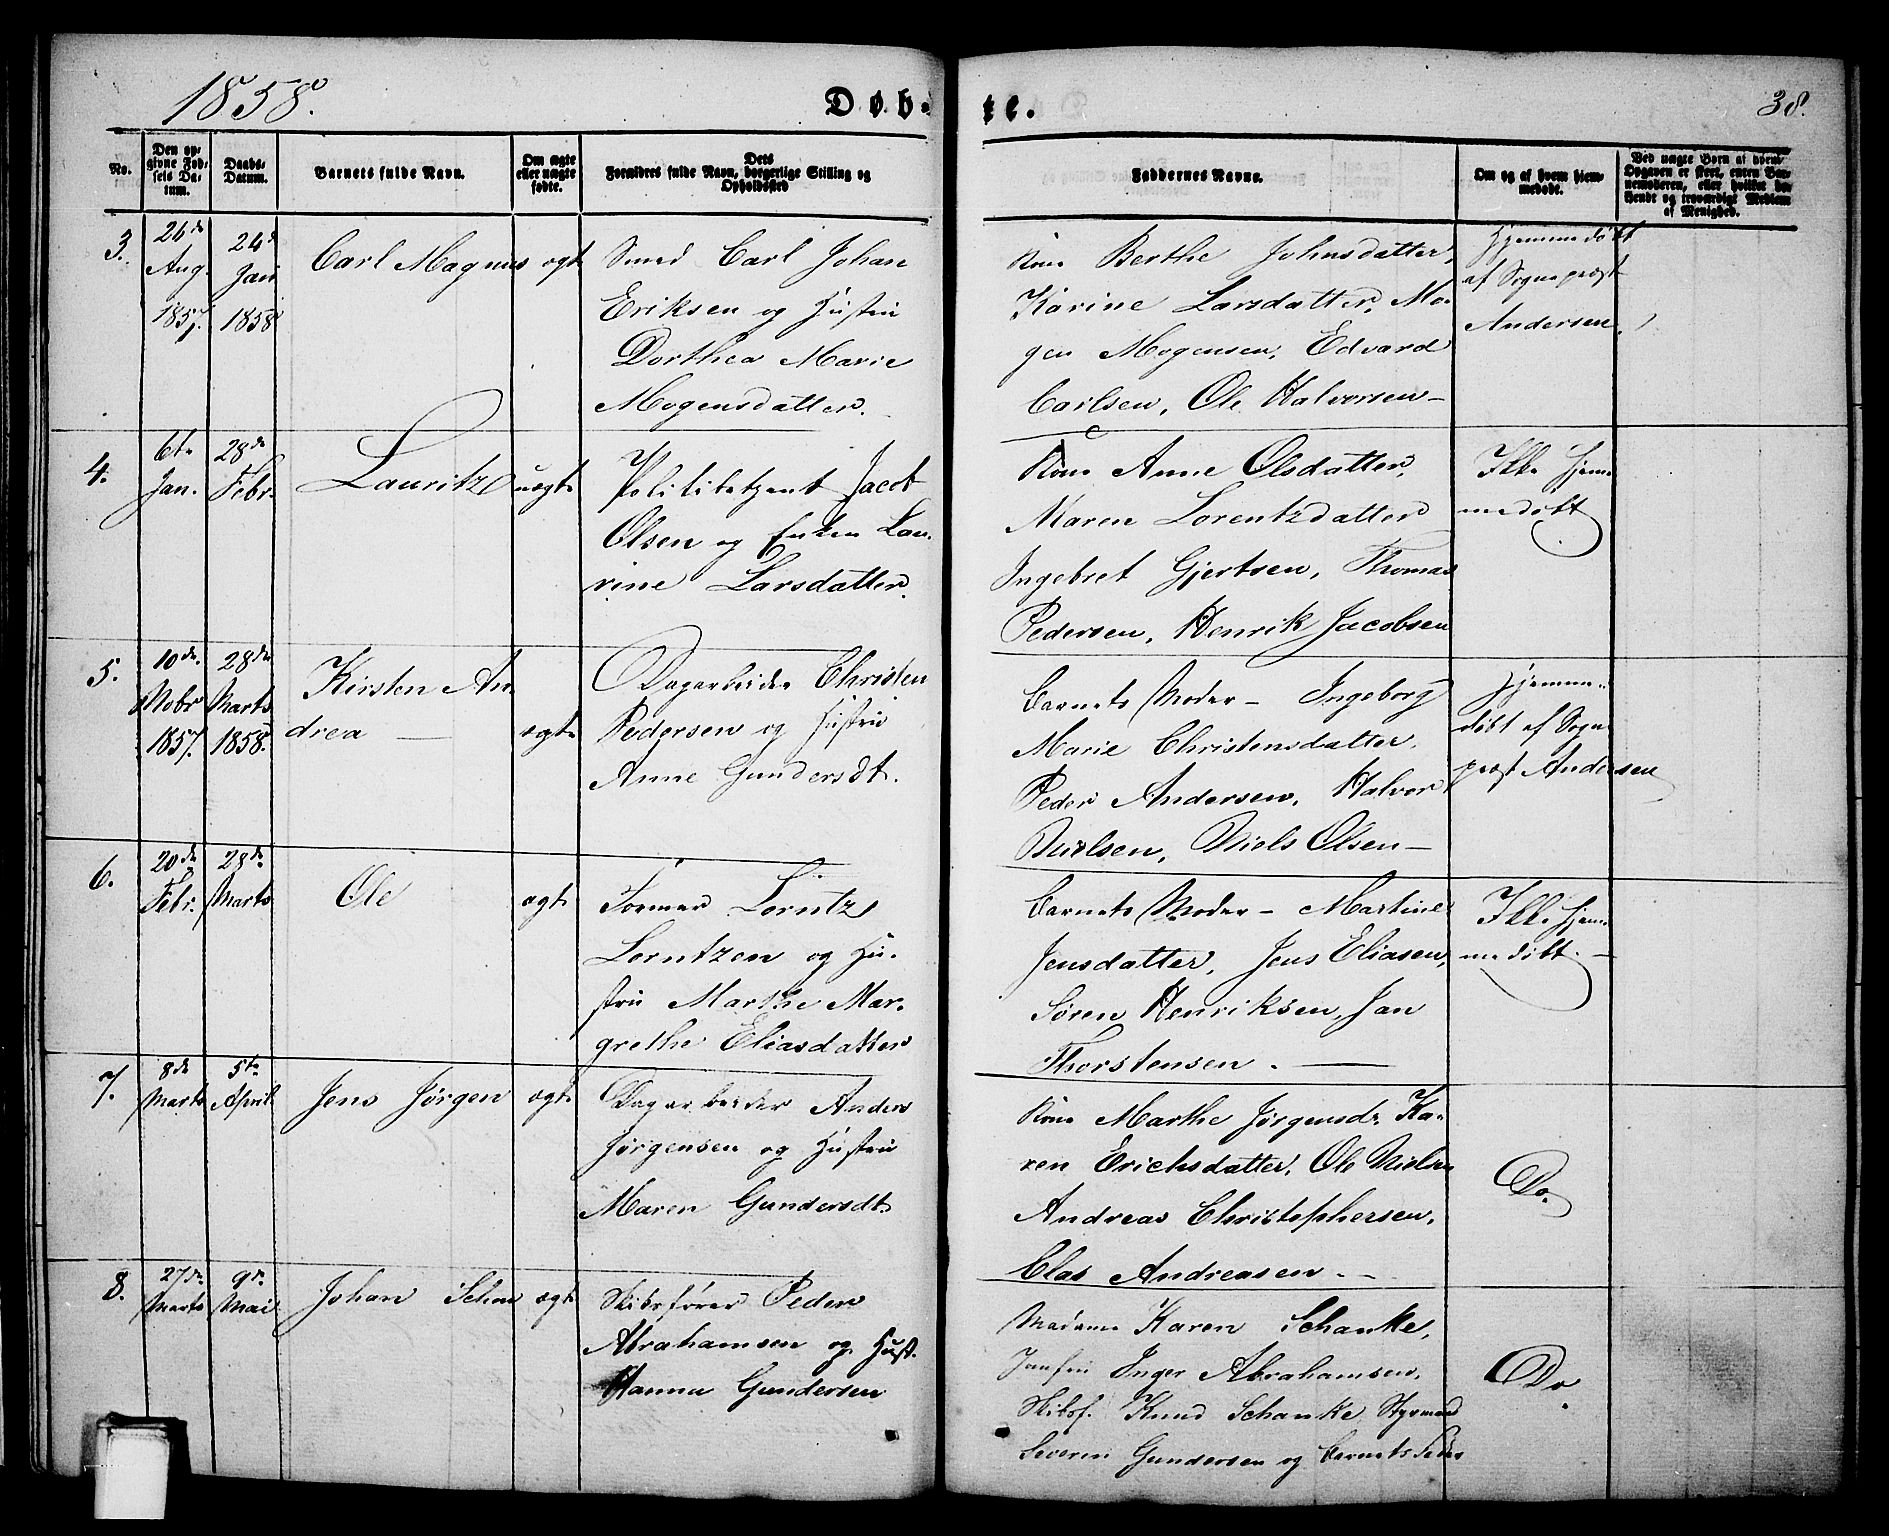 1858.
Døb-
te.
38.
No.
Den op-
givne Fød-
sels Da-
tum.
Daabs-
Datum.
Barnets fulde Navn.
Om ægte
eller uægte
fødte.
Dets
Forældres fulde Navn, borgerlige Stilling og
Opholdssted
Faddernes Navne.
Om og af hvem hjem-
medøbt.
Ved uægte Born af hvem
Opgaven er skeet, enten Bar-
nemoderen, eller hvilket be-
kjendt og troværdigt Medlem
af Menighed.
3.
26de
Aug.
1857.
24de
Jan
1858
Carl Magnus
ægte
Smed Carl Johan
Eriksen og Hustru
Dorthea Marie
Mogensdatter.
Kone Berthe Johnsdatter,
Karine Larsdatter, Mo-
gen Mogensen, Edvard
Carlsen, Ole Halvorsen -
Hjemmedøbt
af Sognepræst
Andersen.
4.
6te
Jan.
28de
Febr.
Lauritz
uægte
Politibetjent Jacob
Olsen og Enken Lau-
rine Larsdatter.
Kone Anne Olsdatter,
Maren Lorentzdatter
Ingebret Gjertsen, Thomas
Pedersen, Henrik Jacobsen
Ikke Hjem-
medøbt
5.
10de
Nobr
1857.
28de
Marts
1858.
Kirsten An-
drea —
ægte
Dagarbeider Christen
Pedersen og Hustru
Anne Gundersdt.
Barnets Moder - Ingeborg
Marie Christensdatter,
Peder Andersen, Halvor
Nielsen, Niels Olsen -
Hjemme-
døbt af Sogne-
præst Andersen
6.
20de
Febr.
28de
Marts
Ole
ægte
Tømmer Lorntz
Lorntzen og Hu-
stru Marthe Mar-
grethe Eliasdatter
Barnets Moder - Martine
Jensdatter, Jens Eliasen,
Søren Henriksen, Jan
Thorstensen. —
Ikke Hjem-
medøbt. -
7.
8de
Marts
5te
April
Jens Jørgen
ægte
Dagarbeider Anders
Jørgensen og Hustru
Maren Gundersdt.
Kone Marthe Jørgensdr. Ka-
ren Erichsdatter, Ole Nielsen
Andreas Christophersen,
Clas Andreasen. -
Do.
8.
27de
Marts
9de
Mai
Johan
ægte
Skibsfører Peder
Abrahamsen og Hust.
Hanna Gundersen
Madame Karen Schanke,
Jomfru Inger Abrahamsen,
Skibsf. Knud Schanke, Styrmand
Severin Gundersen og Barnets Fader
Do.